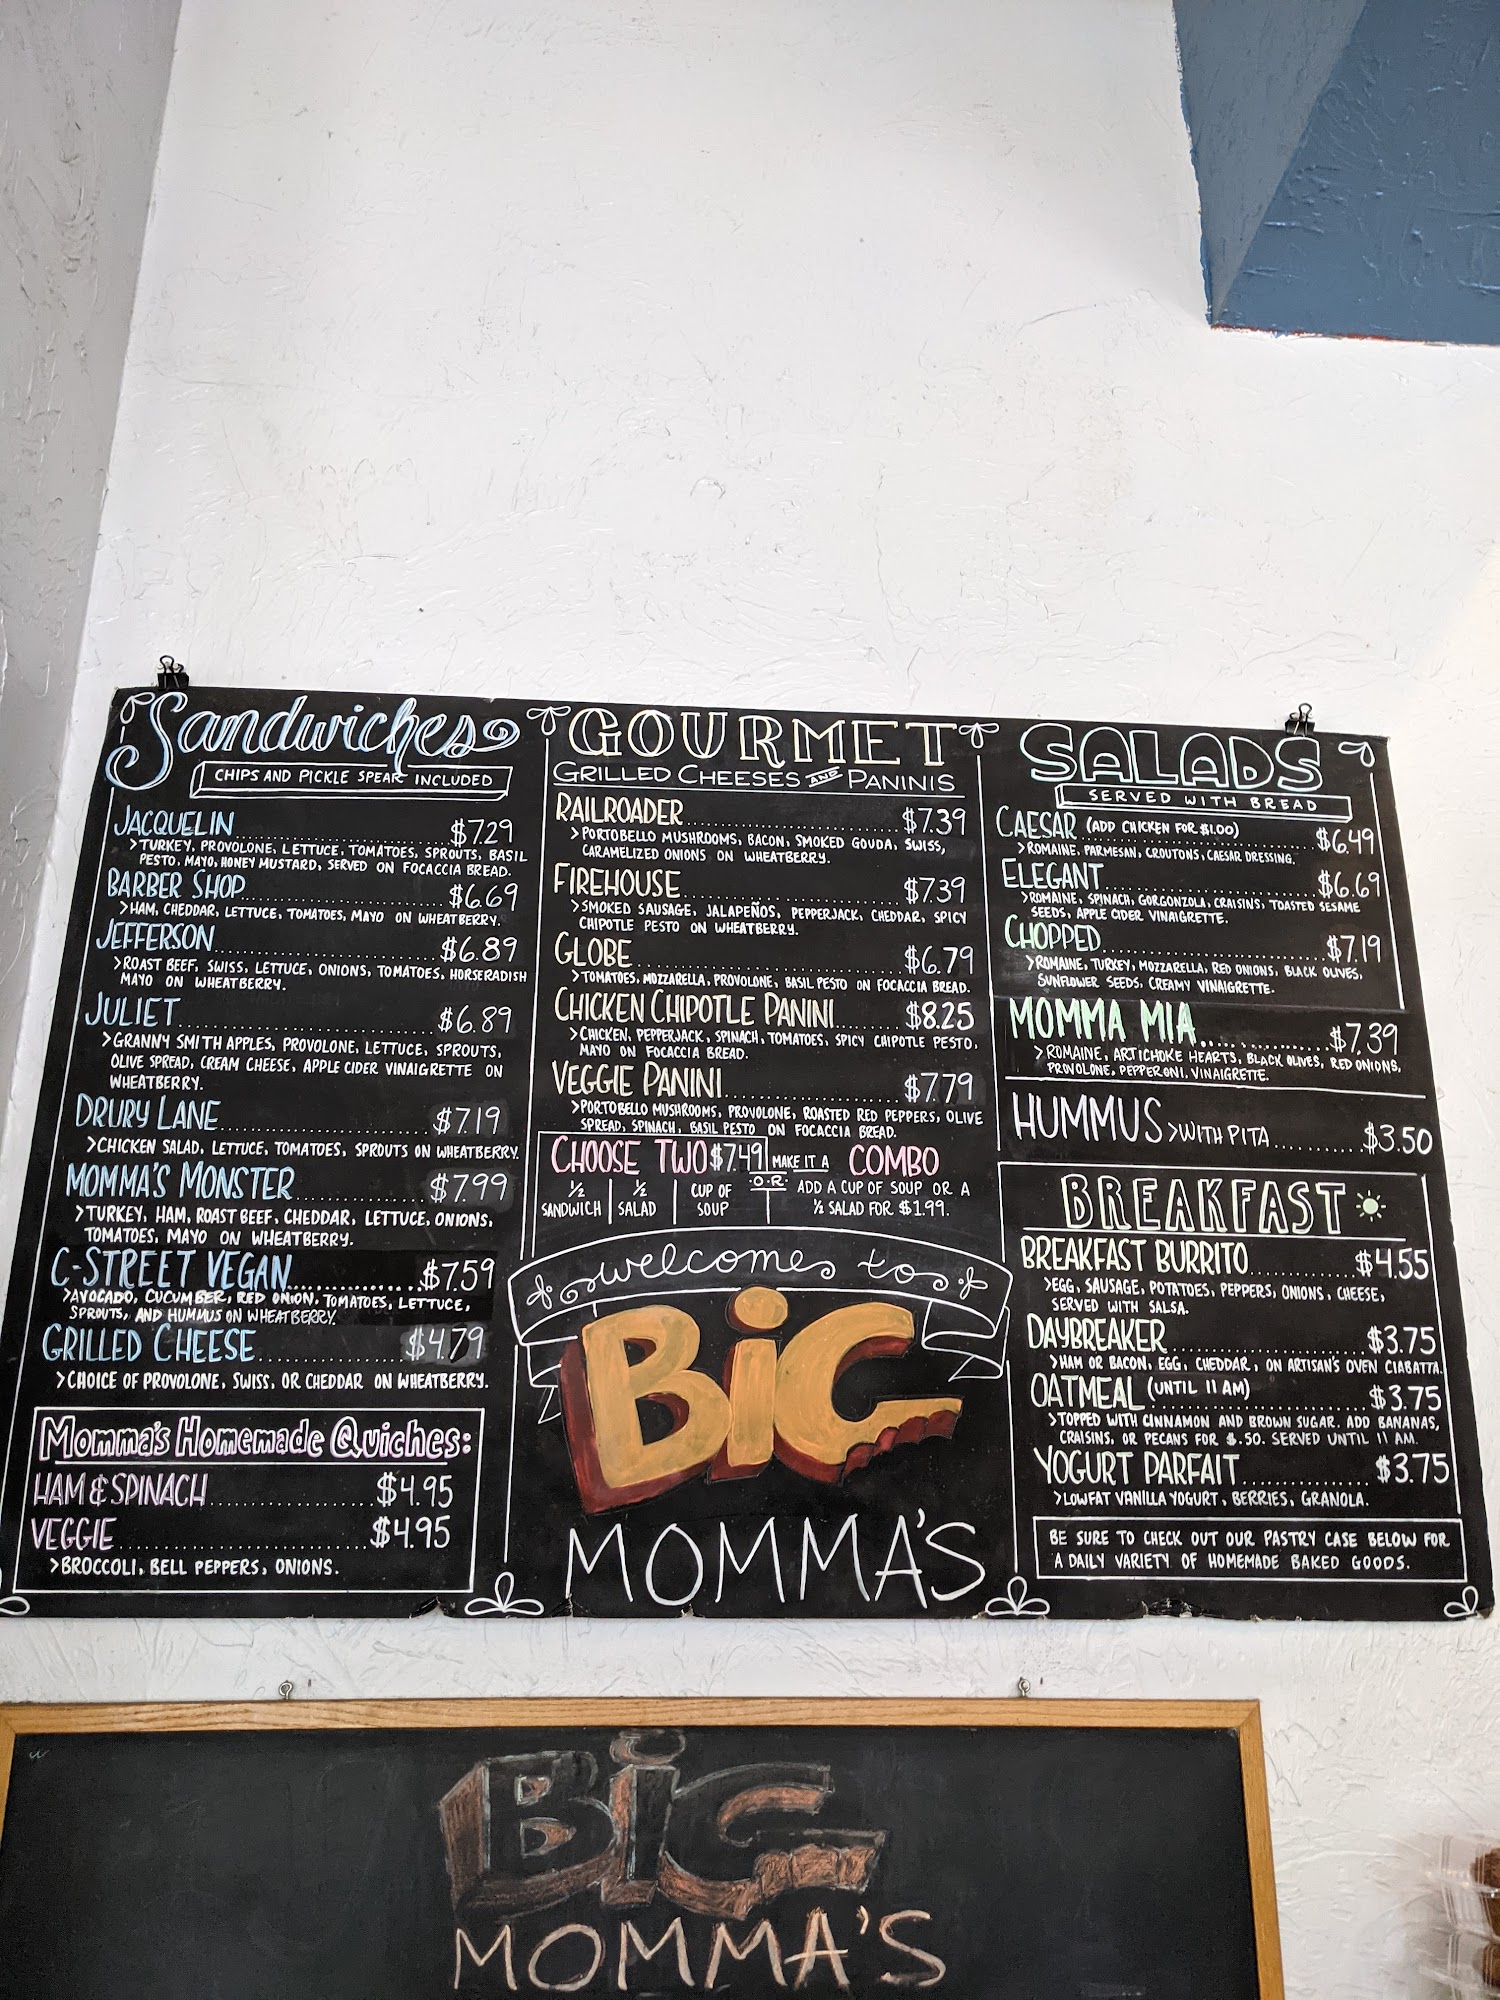 Sandwiches
CHIPS AND PICKLE SPEAR INCLUDED
JACQUELIN $7.29
>TURKEY, PROVOLONE, LETTUCE, TOMATOES, SPROUTS, BASIL
PESTO, MAYO, HONEY MUSTARD, SERVED ON FOCACCIA BREAD.
BARBER SHOP $6.69
>HAM, CHEDDAR, LETTUCE, TOMATOES, MAYO ON WHEATBERRY.
JEFFERSON $6.89
>ROAST BEEF, SWISS, LETTUCE, ONIONS, TOMATOES, HORSERADISH
MAYO ON WHEATBERRY.
JULIET $6.89
>GRANNY SMITH APPLES, PROVOLONE, LETTUCE, SPROUTS,
OLIVE SPREAD, CREAM CHEESE, APPLE CIDER VINAIGRETTE ON
WHEATBERRY.
DRURY LANE $7.19
>CHICKEN SALAD, LETTUCE, TOMATOES, SPROUTS ON WHEATBERRY.
MOMMA'S MONSTER $7.99
>TURKEY, HAM, ROAST BEEF, CHEDDAR, LETTUCE, ONIONS,
TOMATOES, MAYO ON WHEATBERRY.
C-STREET VEGAN $7.59
>AVOCADO, CUCUMBER, RED ONION, TOMATOES, LETTUCE,
SPROUTS, AND HUMMUS ON WHEATBERRY.
GRILLED CHEESE $4.79
>CHOICE OF PROVOLONE, SWISS, OR CHEDDAR ON WHEATBERRY.
Momma's Homemade Quiches:
HAM & SPINACH $4.95
VEGGIE $4.95
>BROCCOLI, BELL PEPPERS, ONIONS.
GOURMET
GRILLED CHEESES AND PANINIS
RAILROADER $7.39
>PORTOBELLO MUSHROOMS, BACON, SMOKED GOUDA, SWISS,
CARAMELIZED ONIONS ON WHEATBERRY.
FIREHOUSE $7.39
>SMOKED SAUSAGE, JALAPEÑOS, PEPPERJACK, CHEDDAR, SPICY
CHIPOTLE PESTO ON WHEATBERRY.
GLOBE $6.79
>TOMATOES, MOZZARELLA, PROVOLONE, BASIL PESTO ON FOCACCIA BREAD.
CHICKEN CHIPOTLE PANINI $8.25
>CHICKEN, PEPPERJACK, SPINACH, TOMATOES, SPICY CHIPOTLE PESTO,
MAYO ON FOCACCIA BREAD.
VEGGIE PANINI $7.79
>PORTOBELLO MUSHROOMS, PROVOLONE, ROASTED RED PEPPERS, OLIVE
SPREAD, SPINACH, BASIL PESTO ON FOCACCIA BREAD.
CHOOSE TWO $7.49
½ SANDWICH
½ SALAD
CUP OF SOUP
·O·R·
MAKE IT A COMBO
ADD A CUP OF SOUP OR A
½ SALAD FOR $1.99.
welcome to
BiG
MOMMA'S
SALADS
SERVED WITH BREAD
CAESAR (ADD CHICKEN FOR $1.00) $6.49
>ROMAINE, PARMESAN, CROUTONS, CAESAR DRESSING.
ELEGANT $6.69
>ROMAINE, SPINACH, GORGONZOLA, CRAISINS, TOASTED SESAME
SEEDS, APPLE CIDER VINAIGRETTE.
CHOPPED $7.19
>ROMAINE, TURKEY, MOZZARELLA, RED ONIONS, BLACK OLIVES,
SUNFLOWER SEEDS, CREAMY VINAIGRETTE.
MOMMA MIA $7.39
>ROMAINE, ARTICHOKE HEARTS, BLACK OLIVES, RED ONIONS,
PROVOLONE, PEPPERONI, VINAIGRETTE.
HUMMUS >WITH PITA $3.50
BREAKFAST
BREAKFAST BURRITO $4.55
>EGG, SAUSAGE, POTATOES, PEPPERS, ONIONS, CHEESE,
SERVED WITH SALSA.
DAYBREAKER $3.75
>HAM OR BACON, EGG, CHEDDAR, ON ARTISAN'S OVEN CIABATTA.
OATMEAL (UNTIL 11 AM) $3.75
>TOPPED WITH CINNAMON AND BROWN SUGAR. ADD BANANAS,
CRAISINS, OR PECANS FOR $.50. SERVED UNTIL 11 AM.
YOGURT PARFAIT $3.75
>LOWFAT VANILLA YOGURT, BERRIES, GRANOLA.
BE SURE TO CHECK OUT OUR PASTRY CASE BELOW FOR
A DAILY VARIETY OF HOMEMADE BAKED GOODS.
BiG
MOMMA'S